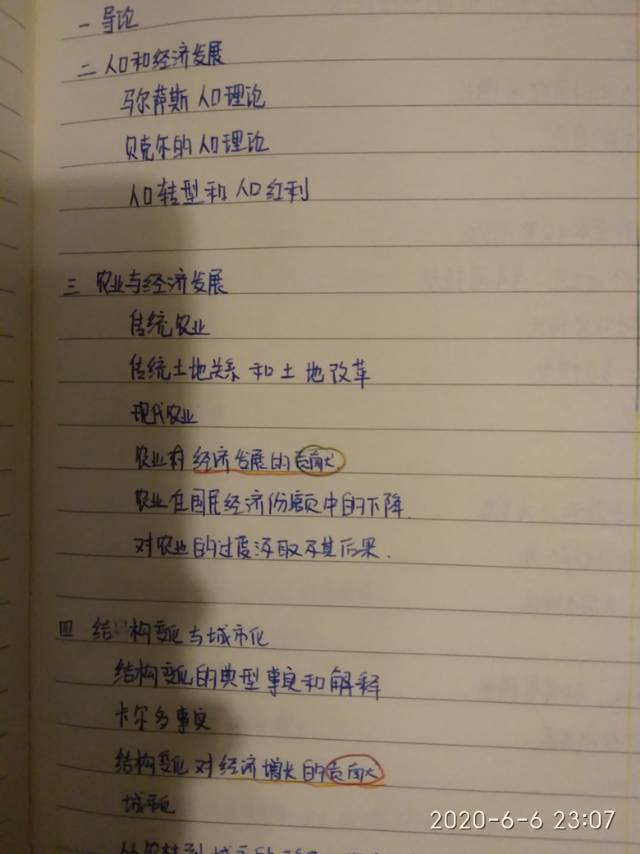 一 导论
二 人口和经济发展
马尔萨斯人口理论
贝克尔的人口理论
人口转型和人口红利
三 农业与经济发展
传统农业
传统土地关系和土地改革
现代农业
农业对经济发展的贡献
农业在国民经济份额中的下降.
对农业的过度汲取及其后果.
四 结构变化与城市化
结构变化的典型事实和解释
卡尔多事实
结构变化对经济增长的贡献
城市化
2020-6-6 23:07